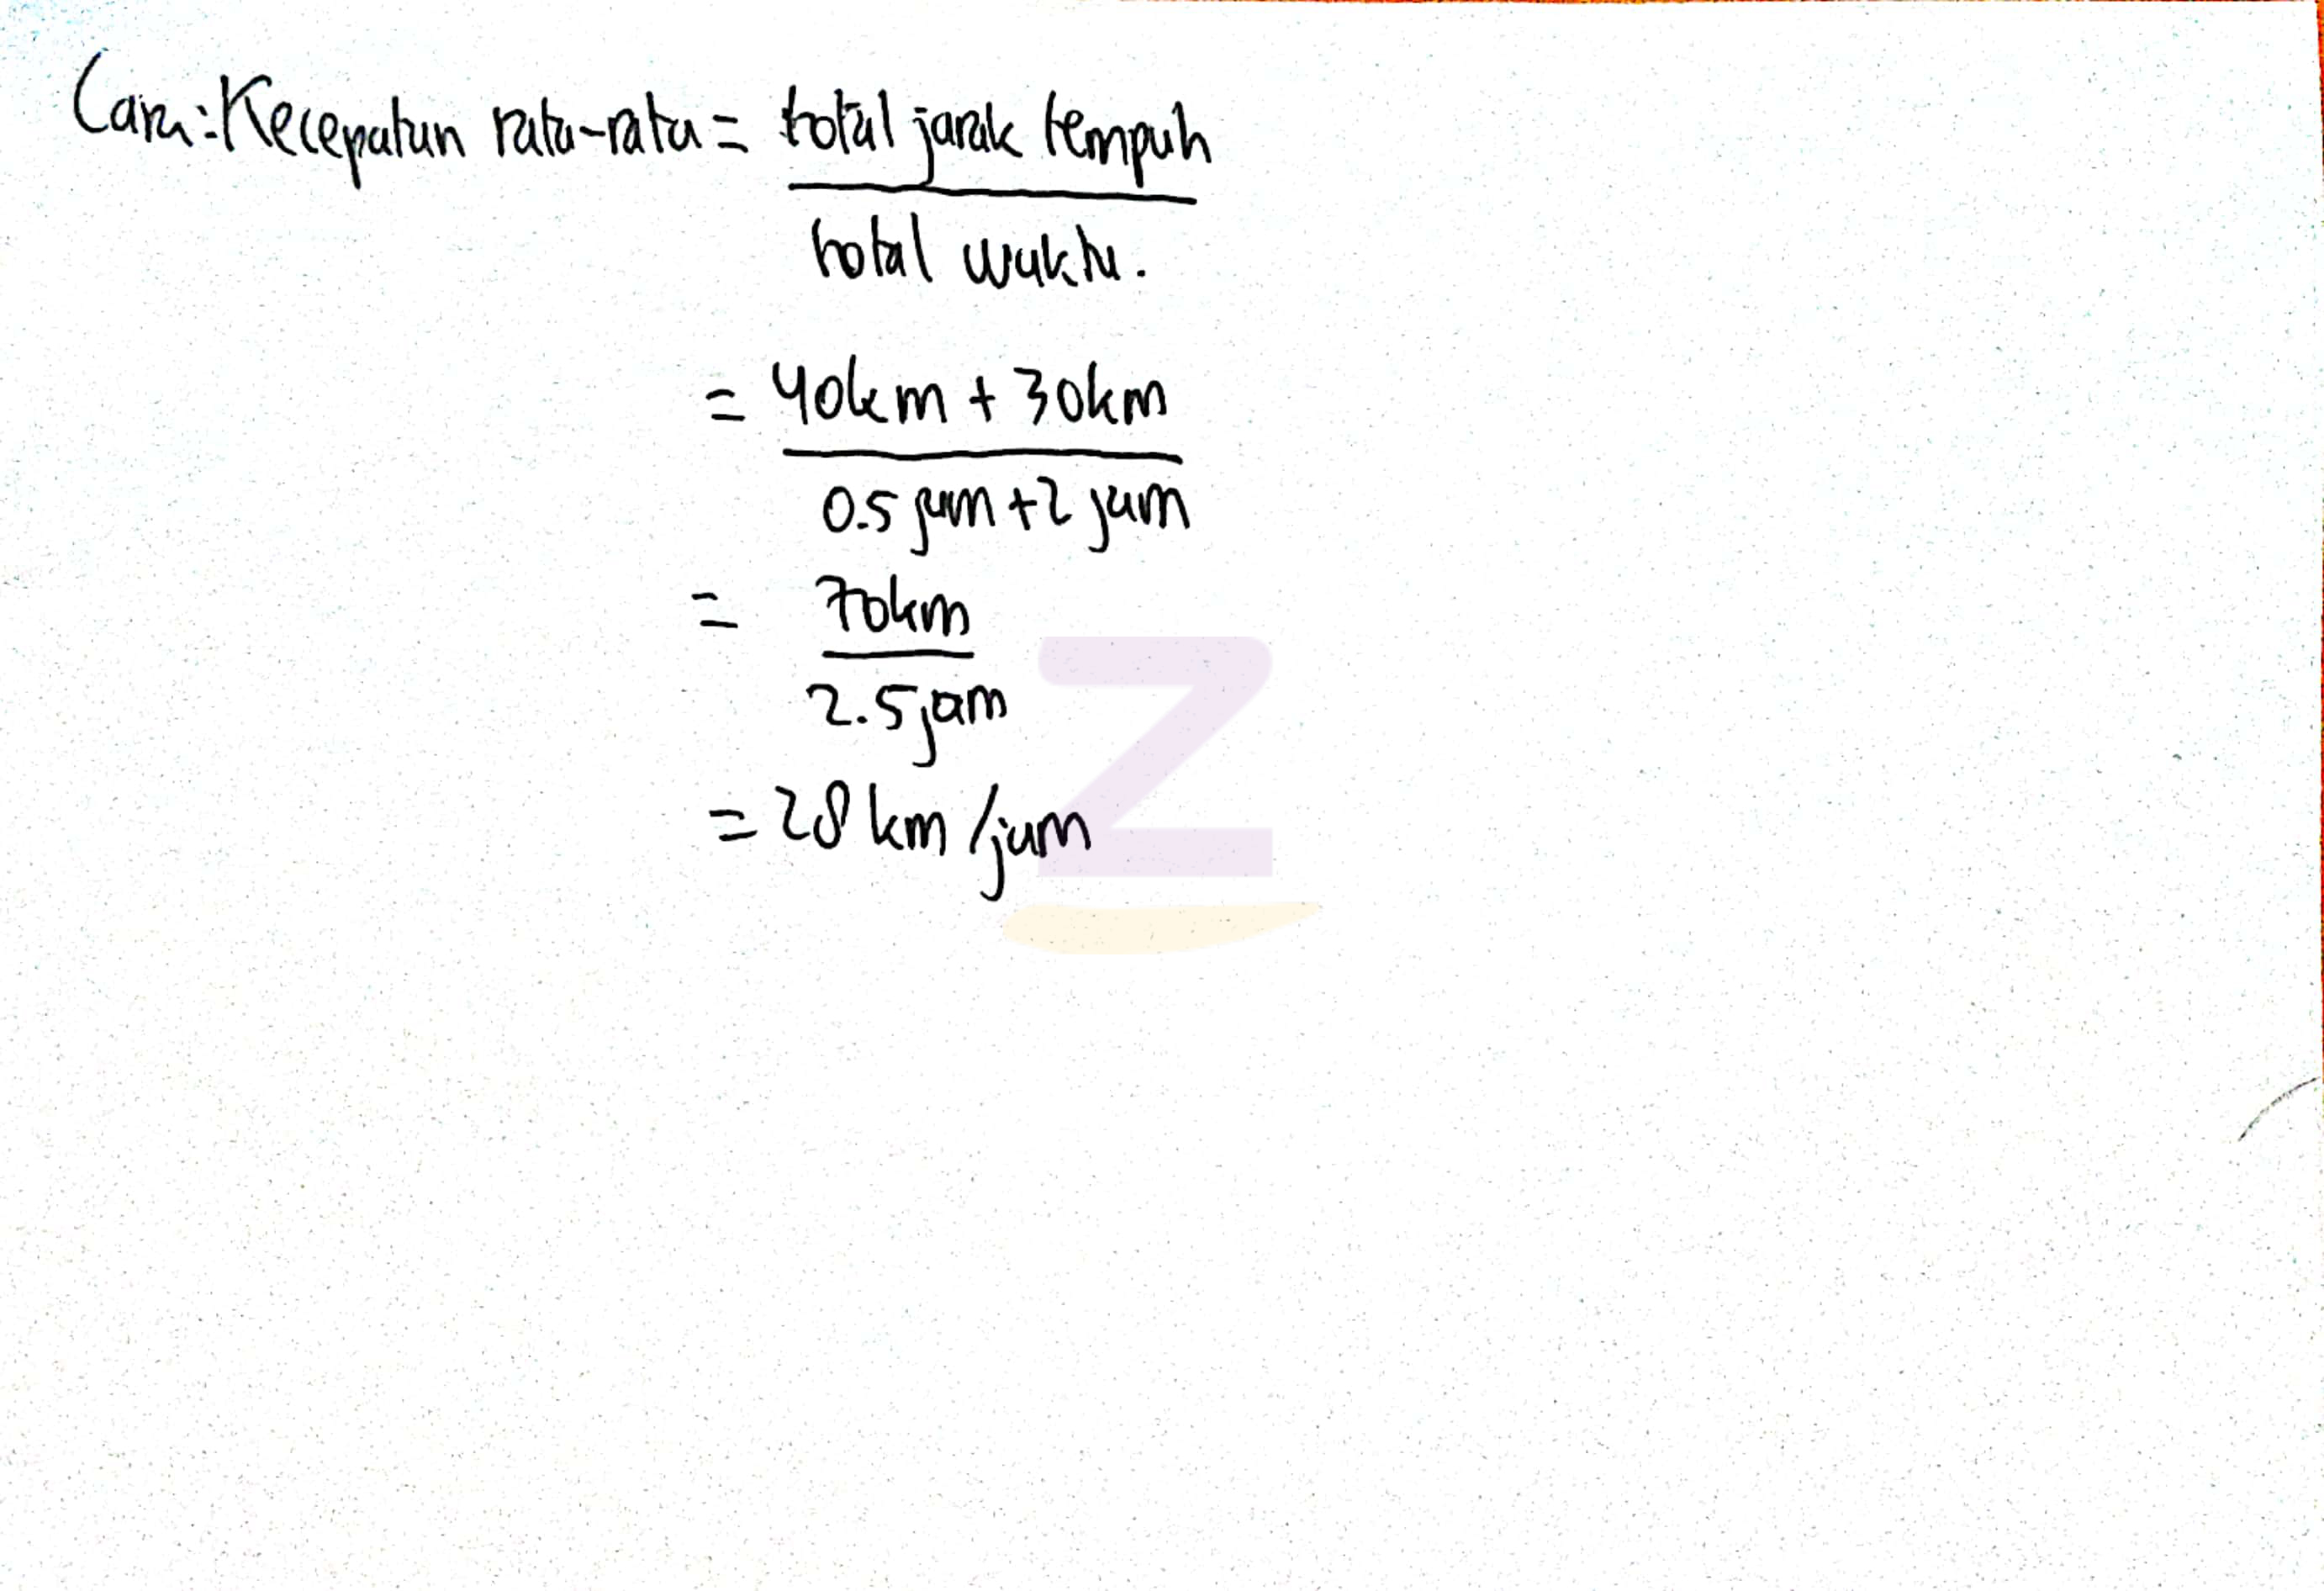 Cara: Kecepatan rata-rata = total jarak tempuh
total waktu.
= 40km + 30km
0.5 jam + 2 jam
= 70km
2.5 jam
= 28 km/jam
Z